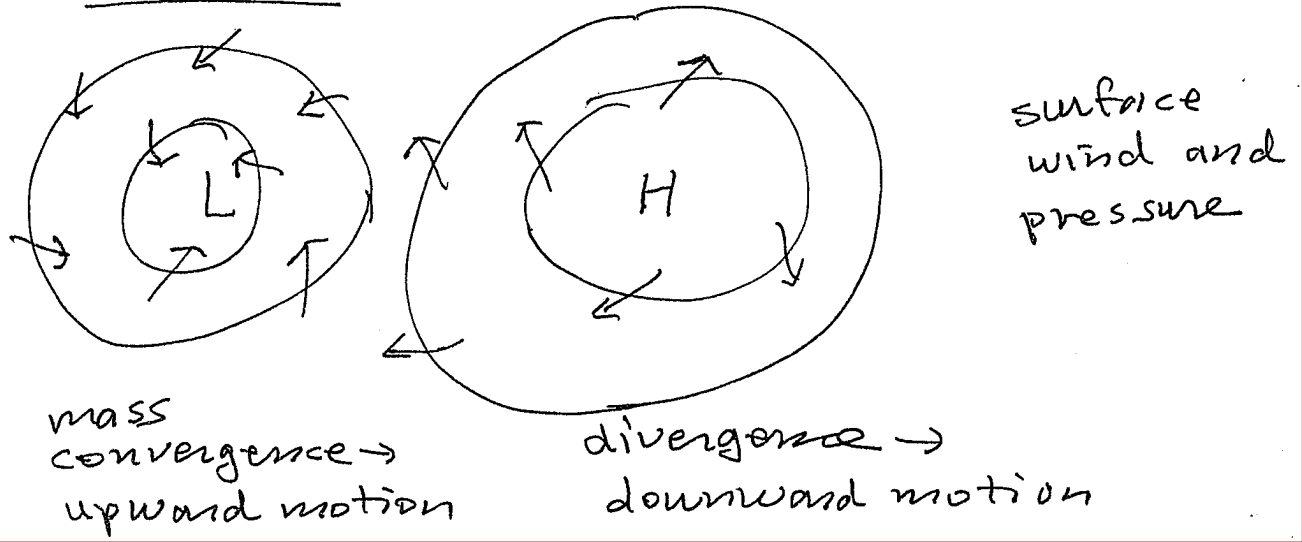 L
H
surface
wind and
pressure
mass
convergence →
upward motion
divergence →
downward motion